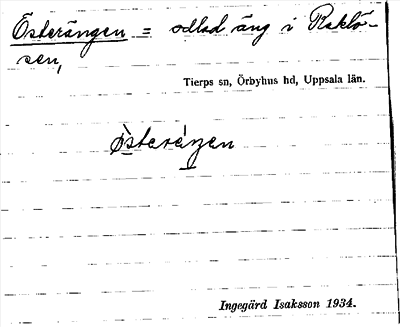 Österängen = odlad äng i Raklö-
sen,
Tierps sn, Örbyhus hd, Uppsala län.
Ingegärd Isaksson 1934.